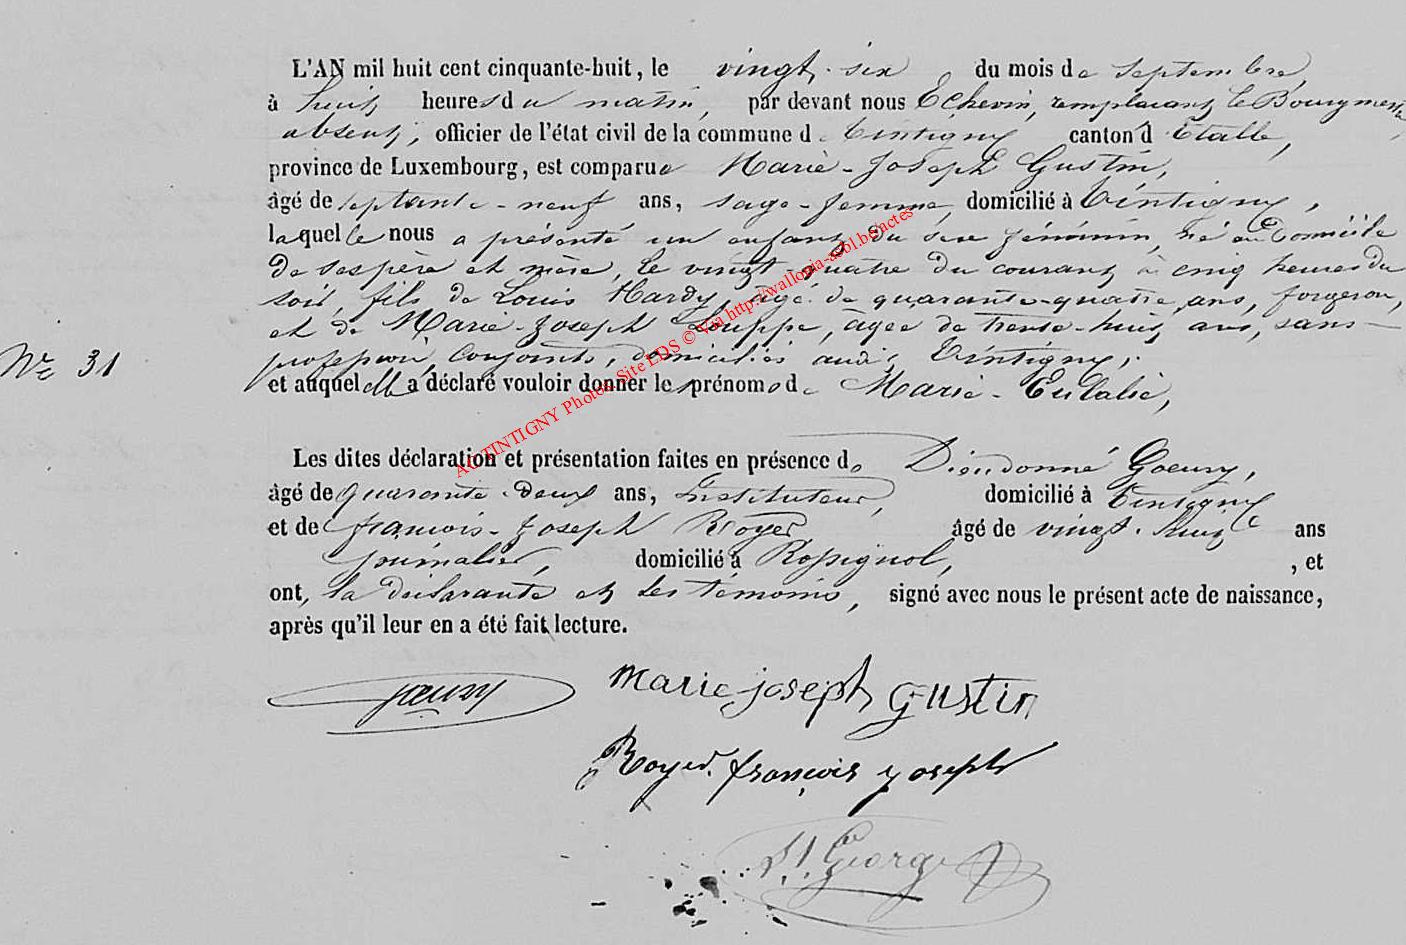 L'AN mil huit cent cinquante-huit, le vingt-six, du mois de septembre,
à huit heures du matin, par devant nous Echevin, remplaçant le Bourgmestre
absent, officier de l'état civil de la commune de Tintigny canton d'Etalle,
province de Luxembourg, est comparue Marie-Joseph Gustin,
âgé de septante-neuf ans, sage-femme, domicilié à Tintigny,
laquelle nous a présenté un enfant du sexe féminin, né au domicile
de ses père et mère, le vingt quatre du courant à cinq heures du
soir, fils de Louis Hardy, âgé de quarante-quatre ans, forgeron,
et de Marie-Joseph Huppe, âgée de trente-huit ans, sans
N° 31
profession, conjoints, domiciliés audit Tintigny;
et auquel elle a déclaré vouloir donner les prénoms de Marie-Eulalie,
Les dites déclaration et présentation faites en présence de Dieudonné Goeury,
âgé de quarante-deux ans, Instituteur, domicilié à Tintigny
et de françois-Joseph Royer âgé de vingt-huit ans
journalier, domicilié à Rossignol, , et
ont, la déclarante et les témoins, signé avec nous le présent acte de naissance,
après qu'il leur en a été fait lecture.
Goeury
marie joseph gustin
Royer françois joseph
George
ACTINTIGNY Photos Site LDS © Via http://wallonia-asbl.be/actes